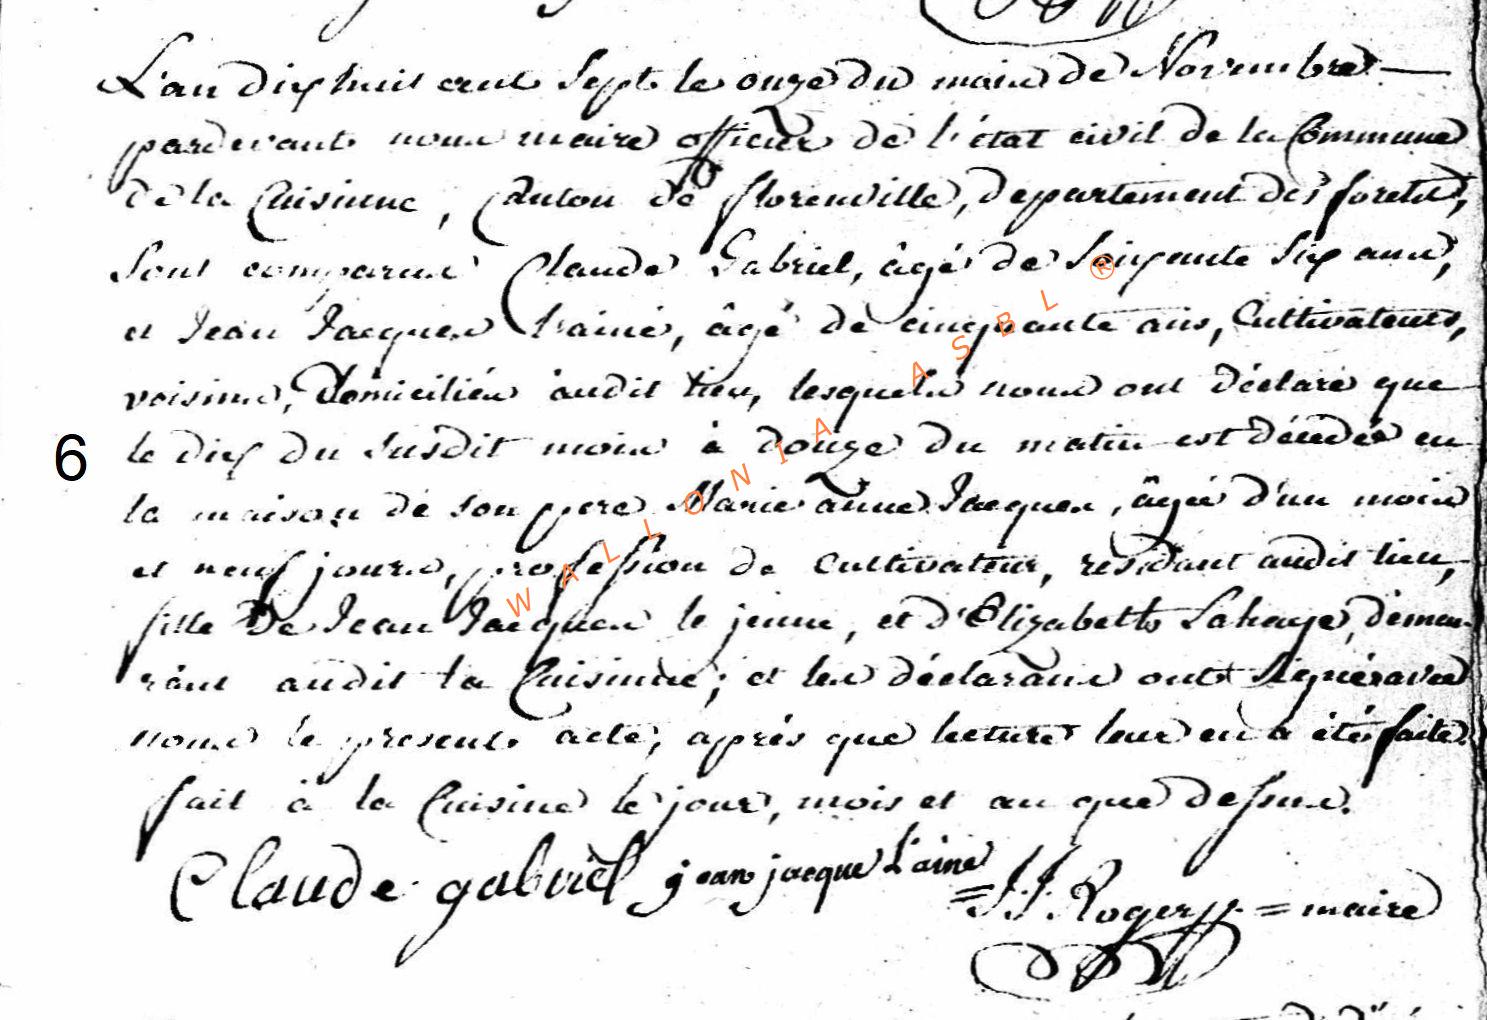 L'an dix huit cent sept le onze du mois de Novembre —
pardevant nous maire officier de l'état civil de la Commune
de la Cuisinne, Canton de florenville, departement des forets,
sont comparus Claude Gabriel, âgé de soixante six ans,
et Jean Jacques l'ainé, âgé de cinquante ans, Cultivateurs,
voisins, Domiciliés audit lieu, lesquels nous ont déclaré que
6 le dix du susdit mois à douze du matin est décédée en
la maison de son pere Marie anne Jacques, âgée d'un mois
et neuf jours, profession de cultivateur, résidant audit lieu,
fille de Jean Jacques le jeune, et d'Elizabeth Lahaye, démeu-
rant audit la Cuisinne; et les déclarans ont signés avec
nous le present acte, aprés que lecture leur en a été faite.
fait à la Cuisine le jour, mois et an que dessus.
Claude gabriel jean jacque l'ainé
= J. J. Roger = maire
WALLONIA ASBL ®